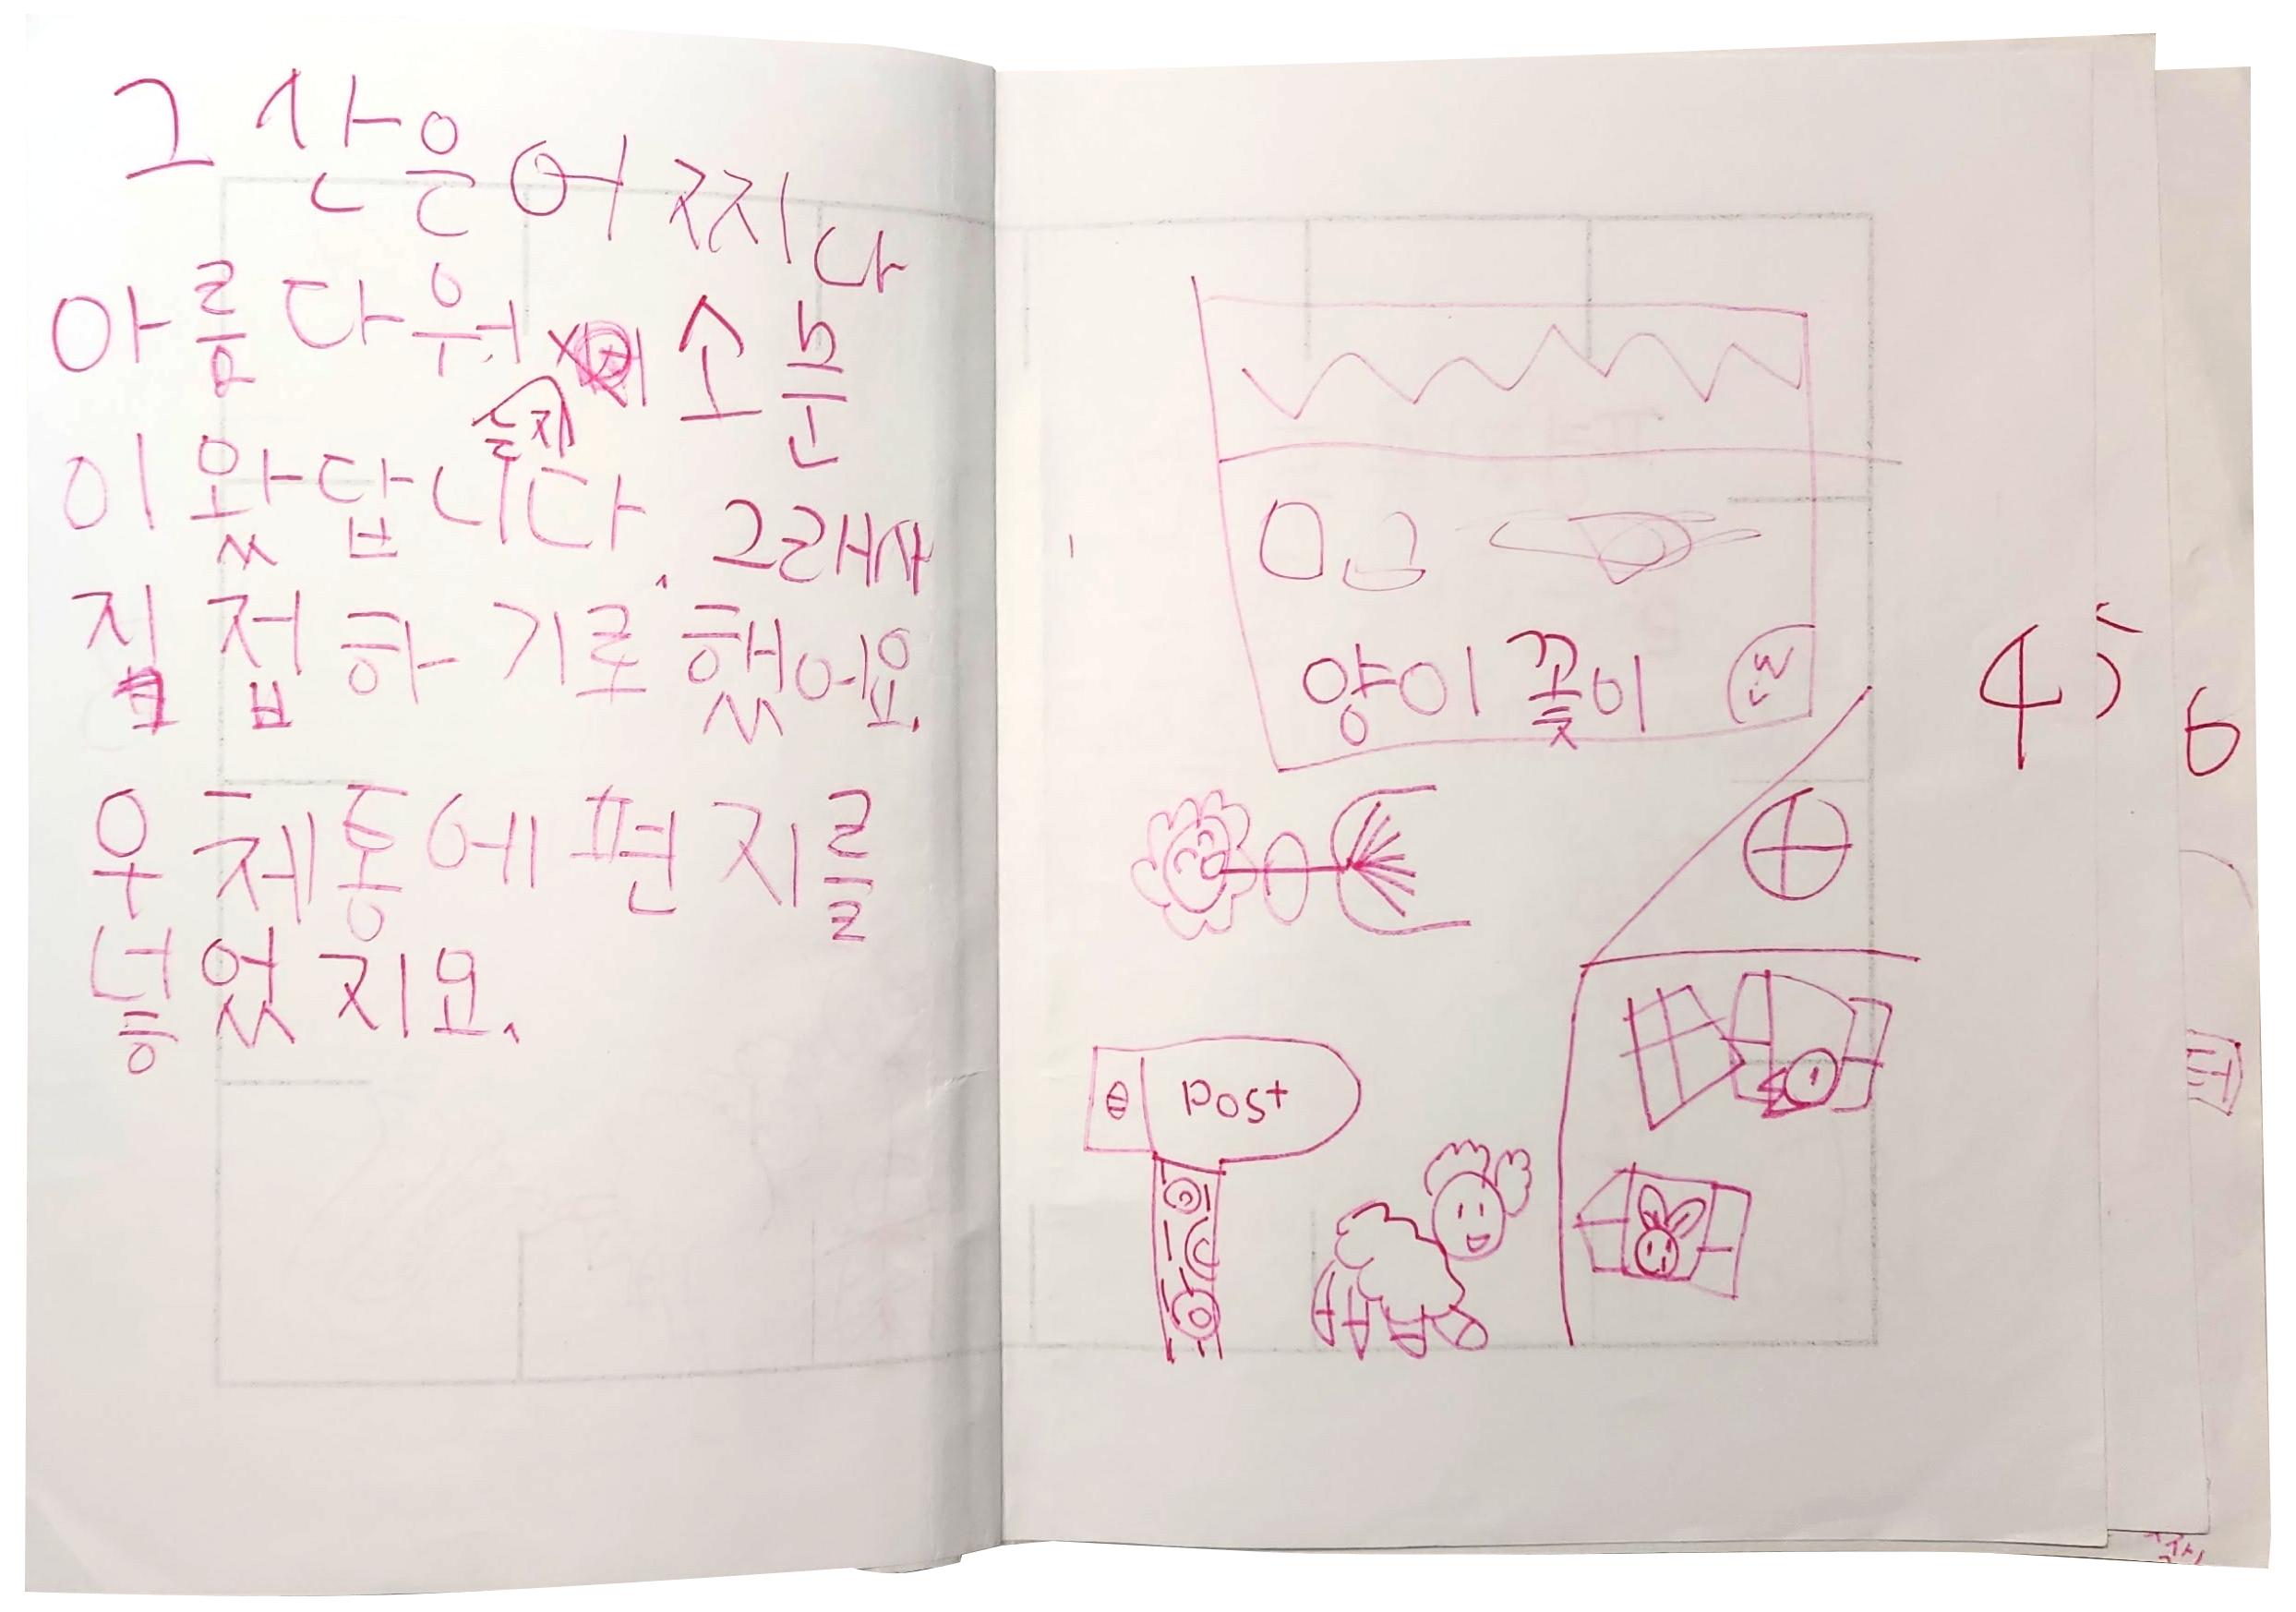 그 산은 어찌나
아름다워 소문
이 왔답니다. 그래사
직접하기로 했어요.
우체통에 편지를
넣었지요.
ㅁ그
양이 꽃이
Post
4 5 6